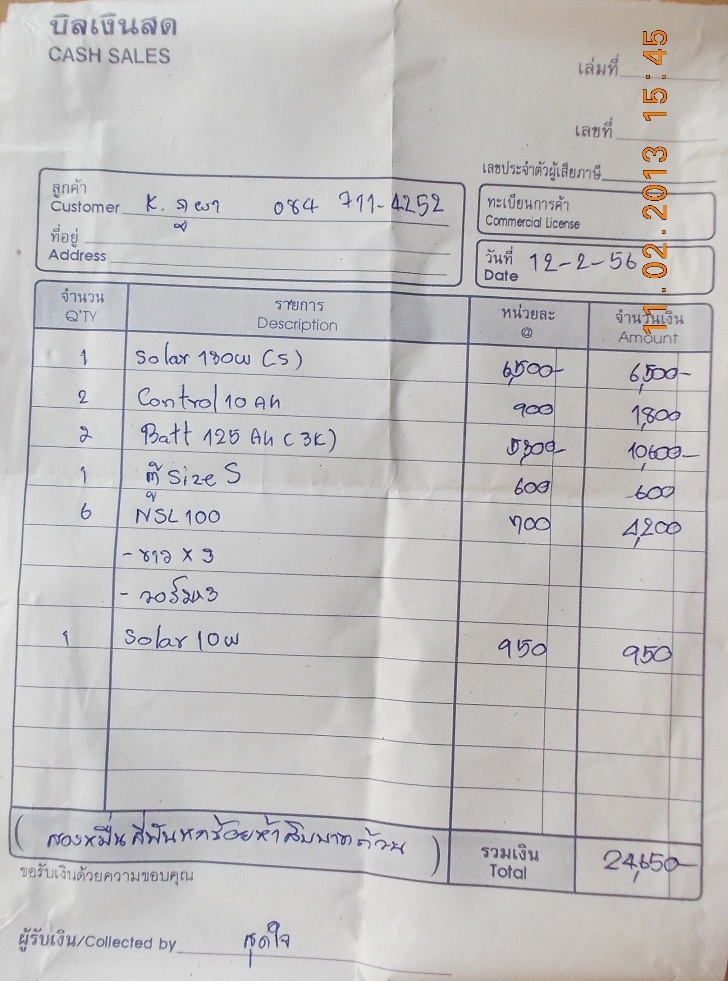 บิลเงินสด
CASH SALES
เล่มที่
เลขที่
เลขประจำตัวผู้เสียภาษี
ลูกค้า
Customer K. 084 711-4252
ที่อยู่
Address
ทะเบียนการค้า
Commercial License
วันที่
Date 12-2-56
11.02.2013 15:45
จำนวน รายการ หน่วยละ จำนวนเงิน
Q'TY Description @ Amount
1 Solar 180W (S) 6,500- 6,500-
2 Control 10 Ah 900 1,800
2 Batt 125 Ah (3K) 5,300- 10,600-
1 ตู้ Size S 600 600
6 NSL 100 700 4,200
- ขาว x 3
- วอร์ม x 3
1 Solar 10W 950 950
(สองหมื่นสี่พันหกร้อยห้าสิบบาทถ้วน)
รวมเงิน
Total 24,650-
ขอรับเงินด้วยความขอบคุณ
ผู้รับเงิน/Collected by สุดใจ